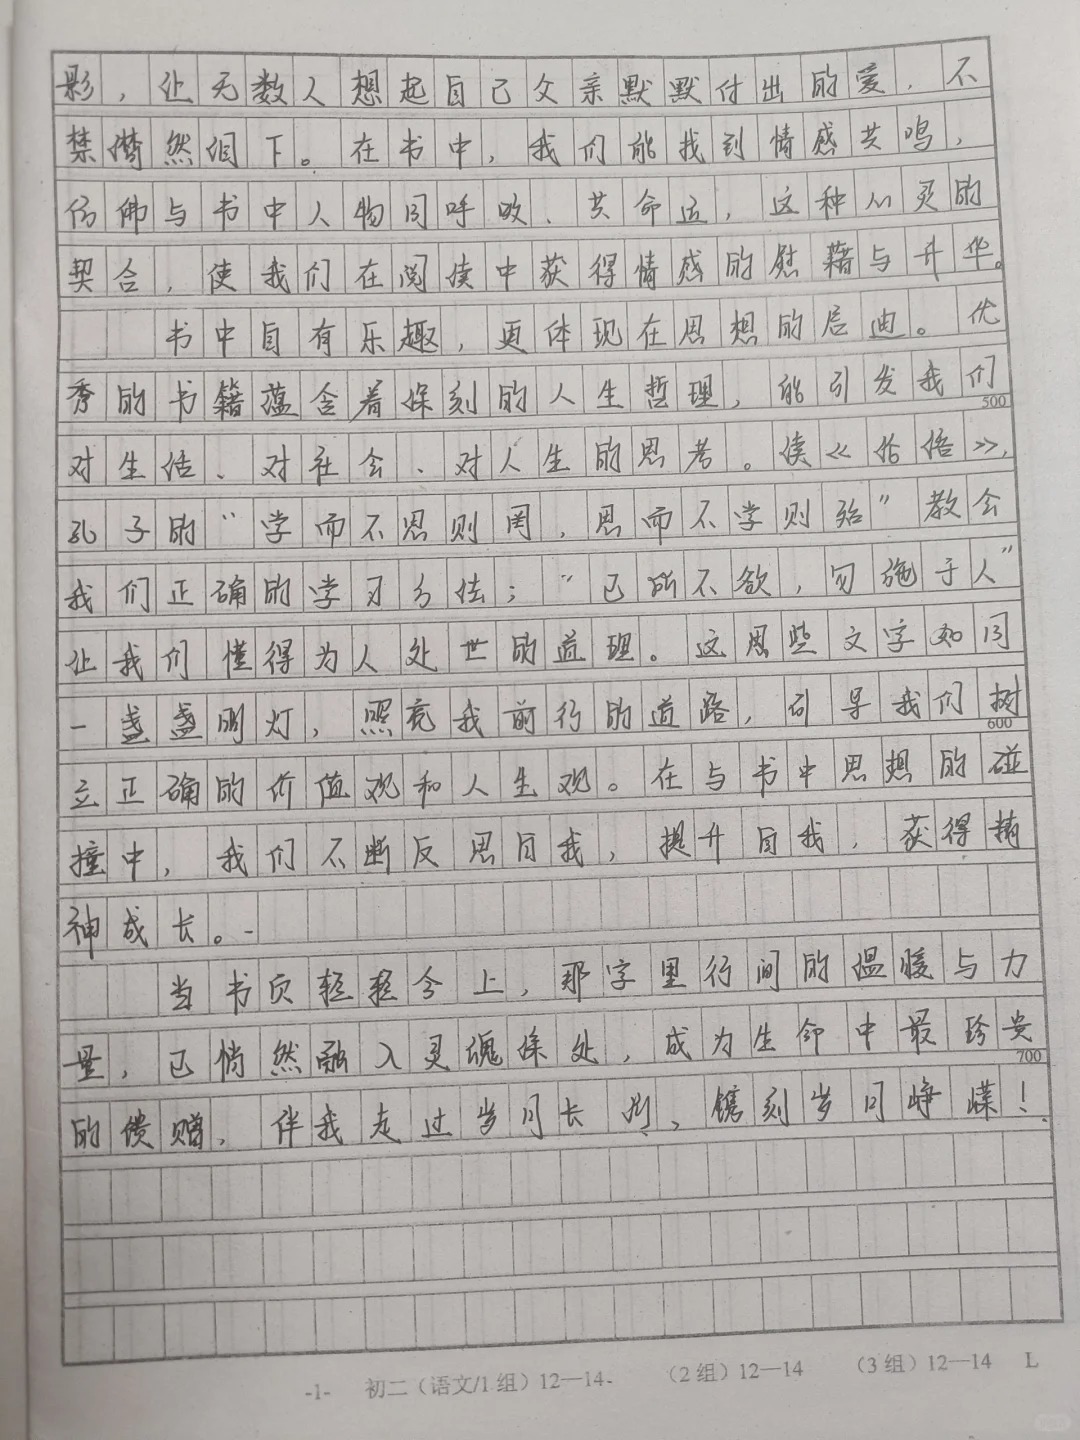 影，让无数人想起自己父亲默默付出的爱，不
禁潸然泪下。在书中，我们能找到情感共鸣，
仿佛与书中人物同呼吸、共命运，这种心灵的
契合，使我们在阅读中获得情感的慰藉与升华。
书中自有乐趣，更体现在思想的启迪。优
秀的书籍蕴含着深刻的人生哲理，能引发我们
500
对生活、对社会、对人生的思考。读《论语》，
孔子的“学而不思则罔，思而不学则殆”教会
我们正确的学习方法；“己所不欲，勿施于人”
让我们懂得为人处世的道理。这思些文字如同
一盏盏明灯，照亮我前行的道路，引导我们树
600
立正确的价值观和人生观。在与书中思想的碰
撞中，我们不断反思自我，提升自我，获得精
神成长。
当书页轻轻合上，那字里行间的温暖与力
量，已悄然融入灵魂深处，成为生命中最珍贵
700
的馈赠，伴我走过岁月长河，镌刻岁月峥嵘！
-1- 初二（语文/1组）12—14- （2组）12—14 （3组）12—14 L